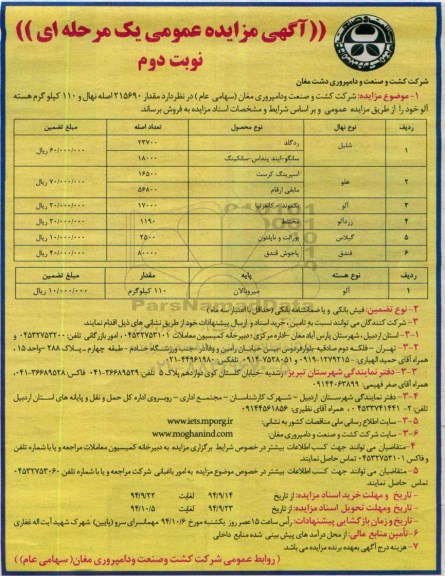 ((آگهی مزایده عمومی یک مرحله ای))
نوبت دوم
شرکت کشت و صنعت و دامپروری دشت مغان
۱-موضوع مزایده: شرکت کشت و صنعت ودامپروری مغان (سهامی عام) در نظر دارد مقدار ۲۱۵۶۹۰ اصله نهال و ۱۱۰ کیلو گرم هسته
آلو خود را از طریق مزایده عمومی و بر اساس شرایط و مشخصات اسناد مزایده به فروش برساند.
ردیف نوع نهال نوع محصول تعداد اصله مبلغ تضمین
۱ شلیل ردگلد ۲۳۷۰۰ ۶۰/۰۰۰/۰۰۰ ریال
سانگو-ایند پنداس-سانکینگ ۱۸۰۰۰
۲ هلو اسپرینگ کرست ۱۶۵۰۰ ۷۰/۰۰۰/۰۰۰ ریال
مابقی ارقام ۵۶۸۰۰
۳ آلو ۱۷۰۰۰ ۲۰/۰۰۰/۰۰۰ ریال
۴ زردآلو مختلط ۱۱۹۰ ۲۰/۰۰۰/۰۰۰ ریال
۵ گیلاس ۲۵۰۰ ۱۰/۰۰۰/۰۰۰ ریال
۶ فندق پاجوش فندق ۸۰۰۰۰ ۴۰/۰۰۰/۰۰۰ ریال
ردیف نوع هسته پایه مقدار مبلغ تضمین
۱ آلو میروبالان ۱۱۰ کیلوگرم ۱۰/۰۰۰/۰۰۰ ریال
۲- نوع تضمین: فیش بانکی و یا ضمانتنامه بانکی (حداقل با اعتبار سه ماه)
۳- شرکت کنندگان می توانند نسبت به تامین، خرید اسناد و ارسال پیشنهادات خود از طریق نشانی های ذیل اقدام نمایند.
۳-۱- استان اردبیل، شهرستان پارس آباد مغان -اداره مرکزی؛ دبیرخانه کمیسیون معاملات ۰۴۵۳۲۷۵۳۱۰۱، امور بازرگانی تلفن: ۰۴۵۳۲۷۵۳۲۰۰ و
۳-۲- تهران - فلکه دوم صادقیه-بلوار فردوس -بین خیابان رامین و وفاآذر -جنب ورزشگاه خادم - طبقه چهارم ـ پلاک ۲۸۸ -واحد ۱۵،
همراه آقای حمید الهیاری: ۰۹۱۲۷۹۲۱۵-۰۹۱۹ و ۷۵۲۸۰۵۱-۰۹۱۴ تلفکس: ۴۴۹۶۱۹۸۰-۰۲۱
۳-۳- دفتر نمایندگی شهرستان تبریز: رشدیه -خیابان گلستان کوی دوازدهم پلاک ۵ تلفن: ۳۶۶۸۹۵۲۹-۰۴۱ فاکس ۳۶۶۸۹۵۲۸-۰۴۱
همراه آقای صفر فهیمی: ۰۹۱۴۴۰۶۳۸۹۹
۳-۴- دفتر نمایندگی شهرستان اردبیل - شهرک کارشناسان - مجتمع اداری - روبروی اداره کل حمل و نقل و پایانه های استان اردبیل
تلفن: ۲- ۰۴۵۳۳۷۴۱۴۴۱، همراه آقای نظیری: ۰۹۱۴۴۵۶۱۸۵۶
۳-۵- سایت اطلاع رسانی ملی مناقصات کشور به نشانی: www.iets.mporg.ir
۳-۶- سایت شرکت کشت و صنعت و دامپروری مغان: www.moghanind.com
۴-متقاضیان می توانند جهت کسب اطلاعات بیشتر در خصوص شرایط برگزاری مزایده به دبیرخانه کمیسیون معاملات مراجعه و یا با شماره تلفن
و فاکس ۰۴۵۳۲۷۵۳۱۰۱ تماس حاصل نمایند.
۵- متقاضیان می توانند جهت کسب اطلاعات بیشتر در خصوص موضوع مزایده به امور باغبانی شرکت مراجعه و یا با شماره تلفن ۰۴۵۳۲۷۵۳۰۶۰
تماس حاصل نمایند.
- تاریخ و مهلت خرید اسناد مزایده: از تاریخ ۹۴/۹/۱۴ لغایت ۹۴/۹/۲۲
- تاریخ ومهلت تحویل اسناد مزایده: از تاریخ ۹۴/۹/۲۳ لغایت ۹۴/۱۰/۵
- تاریخ و زمان بازگشایی پیشنهادات: رأس ساعت ۱۵ عصر روز یکشنبه مورخ ۹۴/۱۰/۶ مهمانسرای سرو (پایین) شهرک شهید آیت اله غفاری
۶-تأمین منابع مالی: از محل درآمد های پیش بینی شده منابع داخلی
۷- هزینه درج آگهی بعهده برنده مزایده می باشد.
( روابط عمومی شرکت کشت وصنعت ودامپروری مغان( سهامی عام) )
ParsNamadData